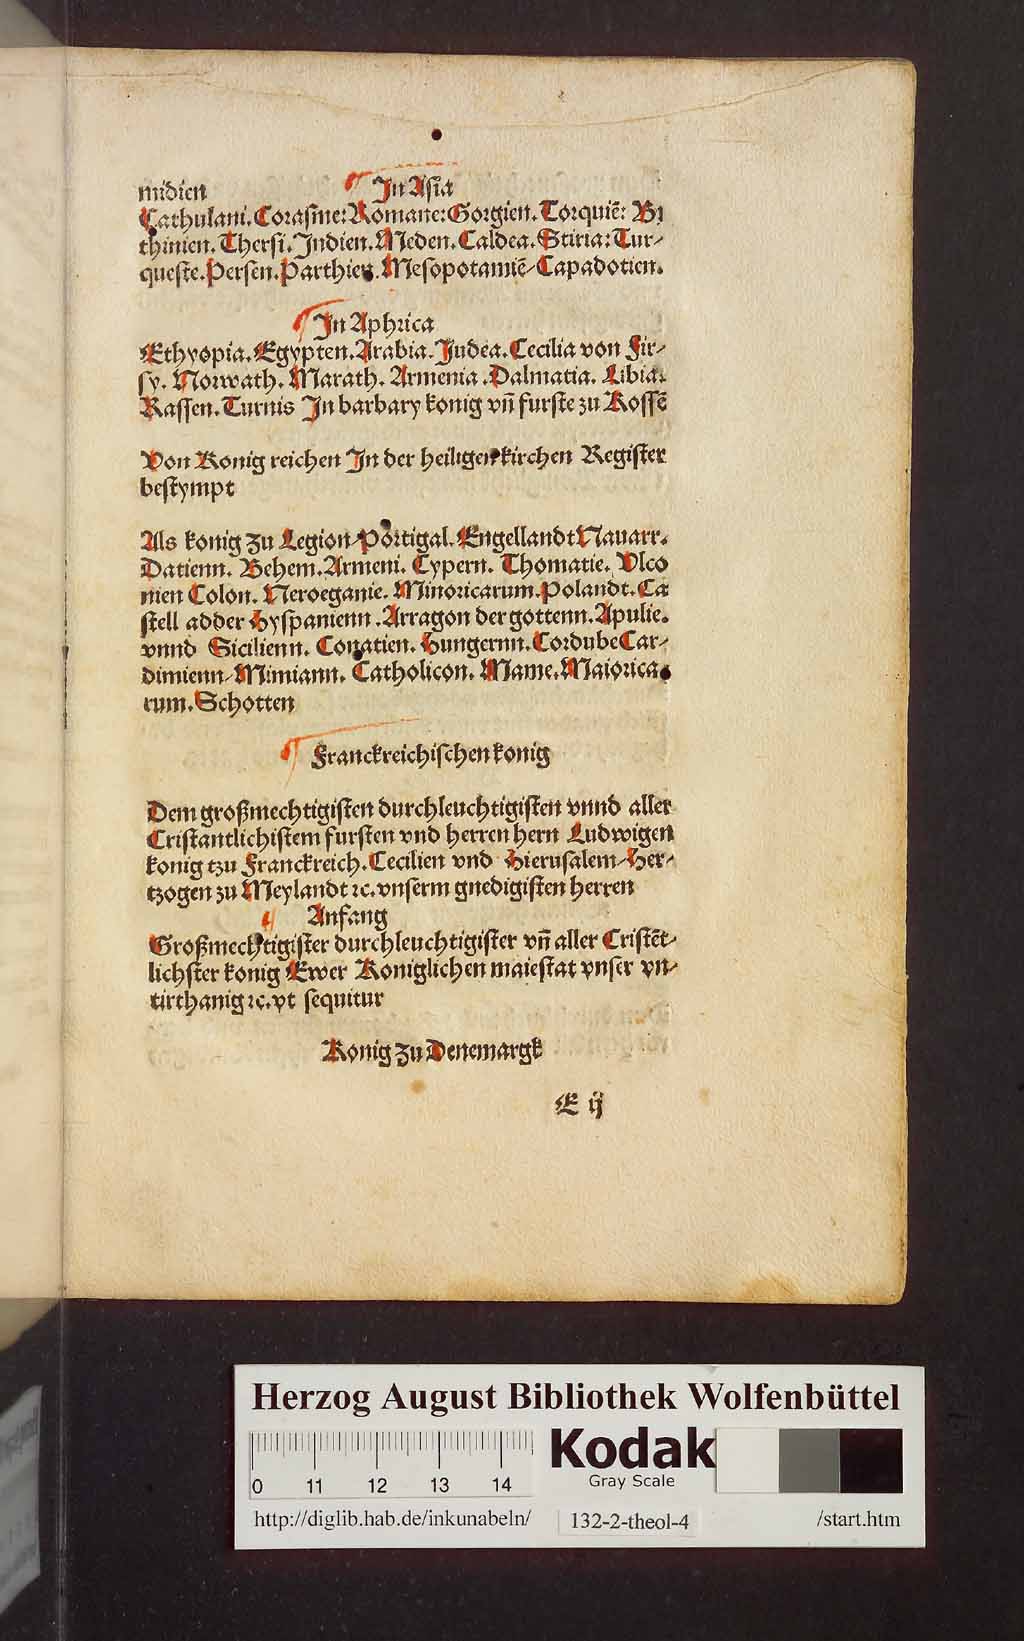 midien In Asia
Cathulani. Corasme: Romane: Gorgien. Torquiē: Bi
thinien. Thersi. Indien. Meden. Caldea. Stiria: Tur-
queste. Persen. Parthien. Mesopotamiē-Capadotien.
In Aphrica
Ethyopia. Egypten. Arabia. Judea. Cecilia von Sir-
sy. Norwath. Marath. Armenia. Dalmatia. Libia.
Rassen. Turnis In barbary konig vn̄ furste zu Rossē
Von Konig reichen In der heiligen kirchen Register
bestympt
Als konig zu Legion-Portigal. Engellandt Nauarr.
Datienn. Behem. Armeni. Cypern. Thomatie. Vlco
nien Colon. Neroeganie. Minoricarum. Polandt. Ca
stell adder hyspanienn. Arragon der gottenn. Apulie.
vnnd Sicilienn. Conatien. Hungernn. Cordube Car-
dimienn-Mimiann. Catholicon. Mame. Maiorica
rum. Schotten
Franckreichischen konig
Dem großmechtigisten durchleuchtigisten vnnd aller
Cristantlichistem fursten vnd herren hern Ludwigen
konig tzu Franckreich. Cecilien vnd Hierusalem-Her-
tzogen zu Meylandt ꝛc. vnserm gnedigisten herren
Anfang
Großmechtigister durchleuchtigister vn̄ aller Cristēt-
lichster konig Ewer Koniglichen maiestat vnser vn-
tirthanig ꝛc. vt sequitur
Konig zu Denemargk
E ij
Herzog August Bibliothek Wolfenbüttel
0 11 12 13 14
Kodak
Gray Scale
http://diglib.hab.de/inkunabeln/ 132-2-theol-4 /start.htm